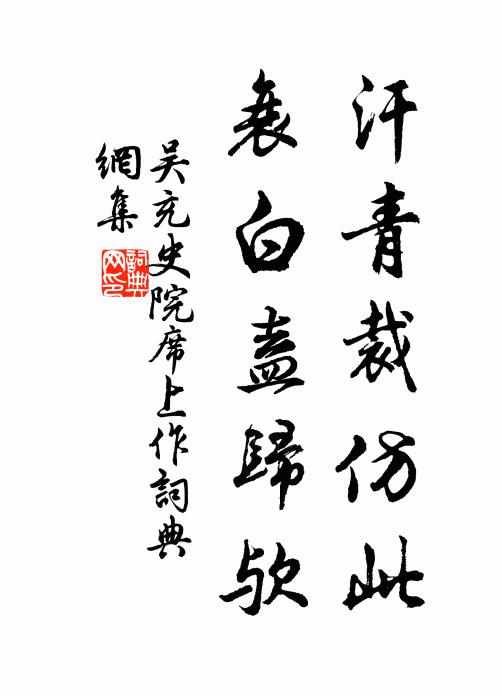 汗青裁仿此
衰白盍歸欤
吴充史院席上作詞典
網集
詞典
网印